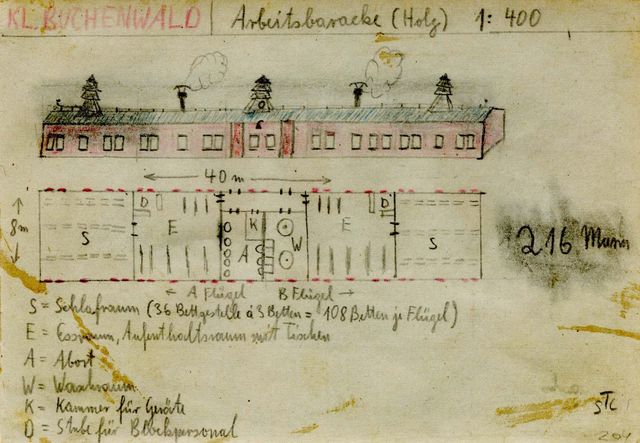 KL. BUCHENWALD | Arbeitsbaracke (Holz) 1: 400
40 m
8m
S
D
E
K
A
W
E
D
S
216 Mann
← A Flügel B Flügel →
S = Schlafraum (36 Bettgestelle à 3 Betten = 108 Betten je Flügel)
E = Essraum, Aufenthaltsraum mit Tischen
A = Abort
W = Waschraum
K = Kammer für Geräte
D = Stube für Blockpersonal